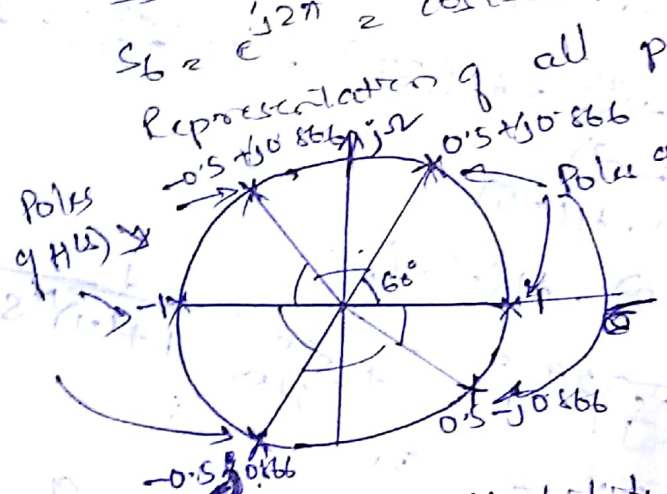 S6 = e^j2π = cos
Representation of all p
-0.5+j0.866 jΩ 0.5+j0.866
Poles
of H(s)
Poles
60°
-1
1
0.5-j0.866
-0.5 0.866